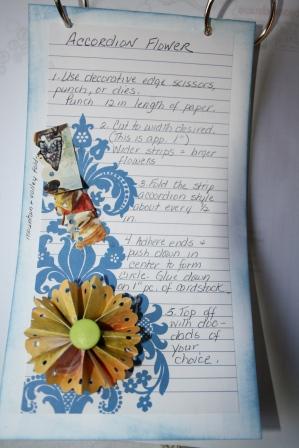 ACCORDION FLOWER
1. Use decorative edge scissors,
punch, or dies.
Punch 12 in length of paper.
2. Cut to width desired.
(This is approx 1")
Wider strips = larger
flowers
3. Fold the strip
accordion style
about every ¼
in
4. Adhere ends &
push down in
center to form
circle. Glue down
on pc of cardstock
5. Top off
with doo-
dads of
your
choice.